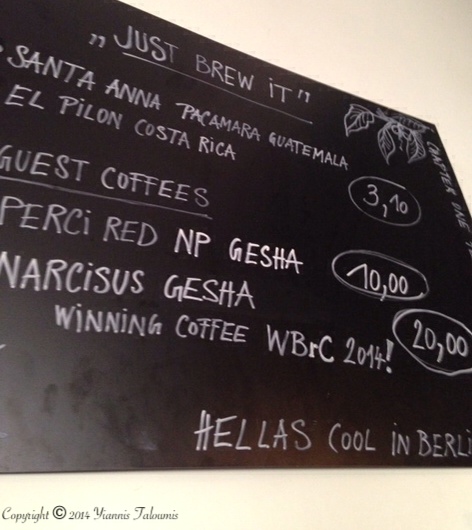 „JUST BREW iT"
SANTA ANNA PACAMARA GUATEMALA
EL PILON COSTA RICA
3,10
GUEST COFFEES
PERCi RED NP GESHA
10,00
NARCiSUS GESHA
WiNNiNG COFFEE WBrC 2014!
20,00
HELLAS COOL iN BERLi
Copyright © 2014 Yiannis Taloumis